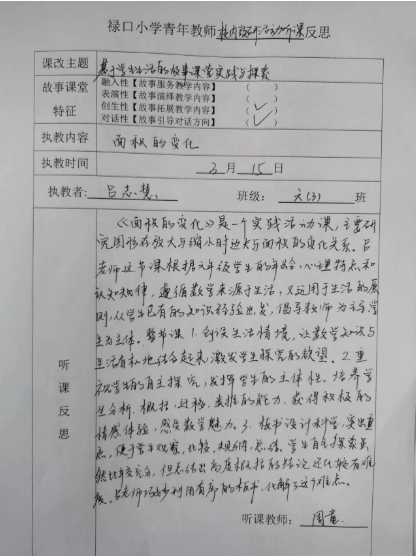 禄口小学青年教师校内教研活动听课反思
课改主题 基于学生生活的故事课堂实践与探索
故事课堂特征
融入性【故事服务教学内容】（ ）
表演性【故事演绎教学内容】（ ）
创生性【故事拓展教学内容】（ ✓ ）
对话性【故事引导对话方向】（ ✓ ）
执教内容 面积的变化
执教时间 3月15日
执教者：吕志慧 班级：六（3）班
听课反思
《面积的变化》是一个实践活动课，主要研
究图形在放大与缩小时边长与面积的变化关系。吕
老师这节课根据六年级学生的年龄、心理特点和
认知规律，遵循数学来源于生活，又运用于生活的原
则，从学生已有的知识经验出发，倡导教师为主导学
生为主体。整节课 1. 创设生活情境，让数学知识与
生活有机地结合起来，激发学生探究的欲望。2. 重
视学生的自主探究，发挥学生的主体性，培养学
生分析、概括、迁移、类推的能力，获得积极的
情感体验，感受数学魅力。3. 板书设计科学，突出重
点，便于学生观察，比较，找规律，总结。学生自主探索虽
然比较充分，但总结出高度概括的结论还比较有难
度。吕老师巧妙利用有序的板书，化解了这个难点。
听课教师：周